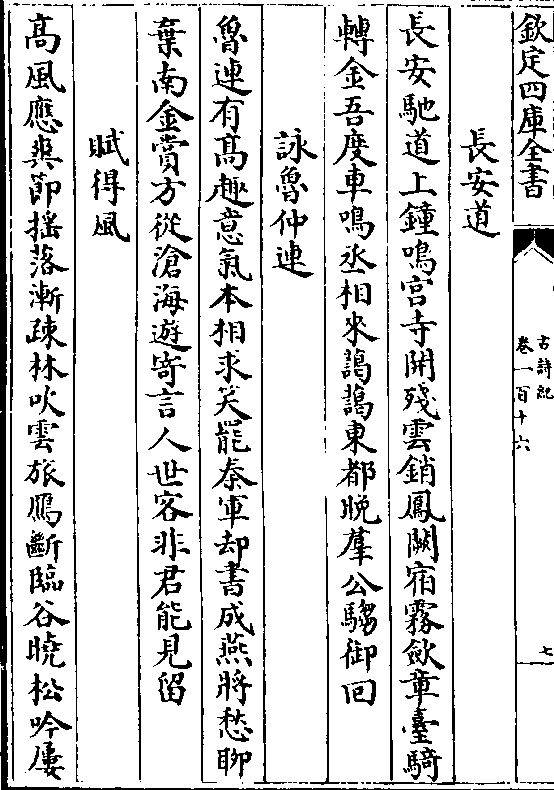 欽定四庫全書
古詩紀
卷一百十六
七
長安道
長安馳道上鐘鳴宫寺開殘雲銷鳳闕宿霧歛章臺騎
轉金吾度車鳴丞相來藹藹東都晚羣公騶御回
詠魯仲連
魯連有髙趣意氣本相求笑罷秦軍却書成燕將愁聊
棄南金賞方從滄海遊寄言人世客非君能見留
賦得風
髙風應爽節揺落漸疎林吹雲旅鴈斷臨谷曉松吟屢